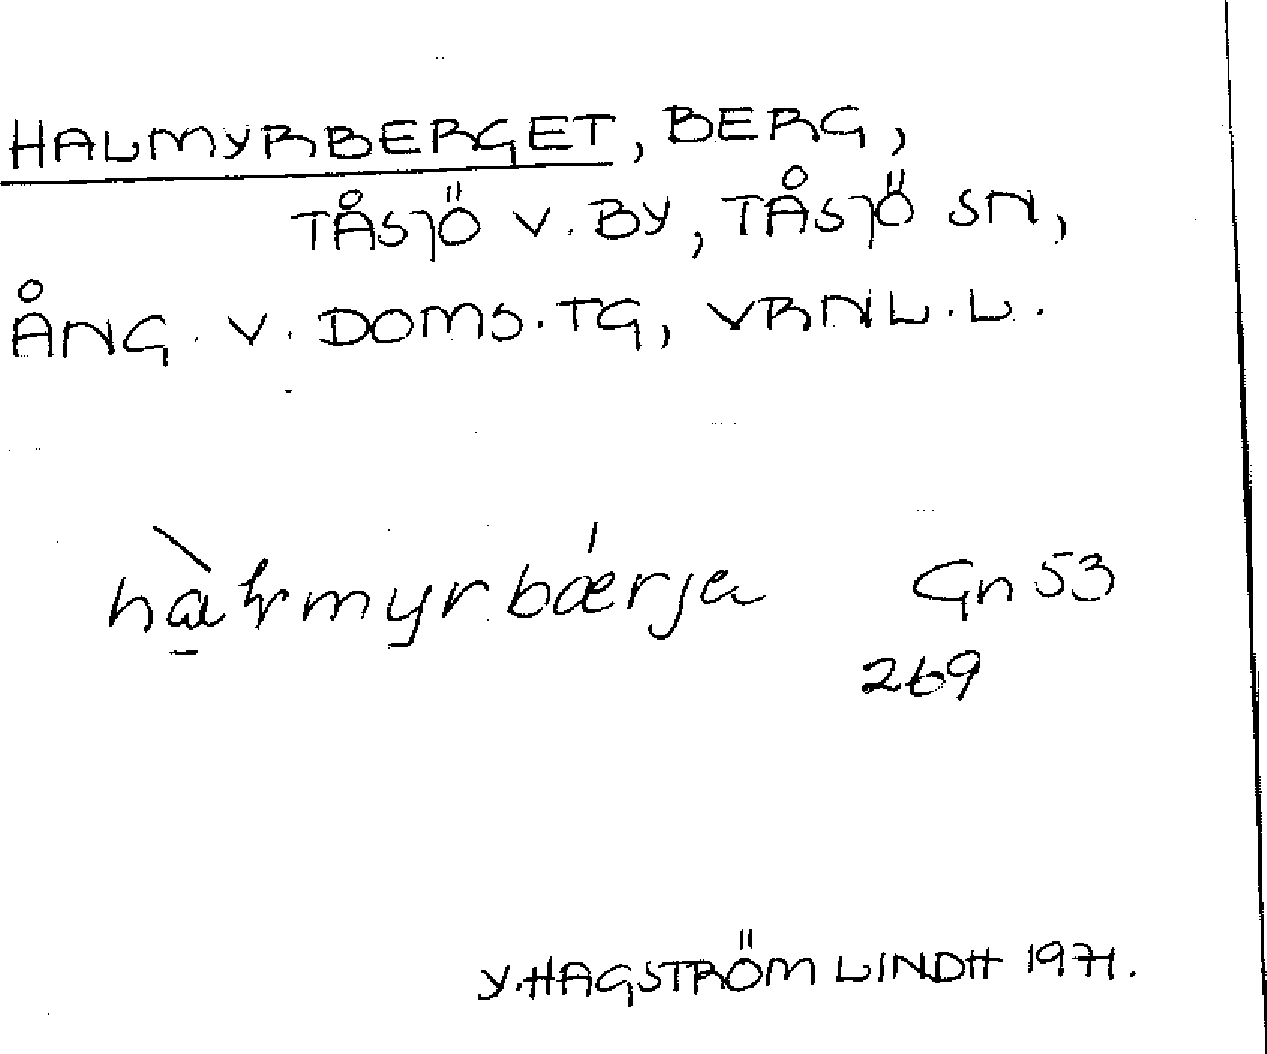 HALMYRBERGET, BERG,
TÅSJÖ V. BY, TÅSJÖ SN,
ÅNG. V. DOMS.TG, VRNL.L.
Gn 53
269
Y. HAGSTRÖM LINDH 1971.